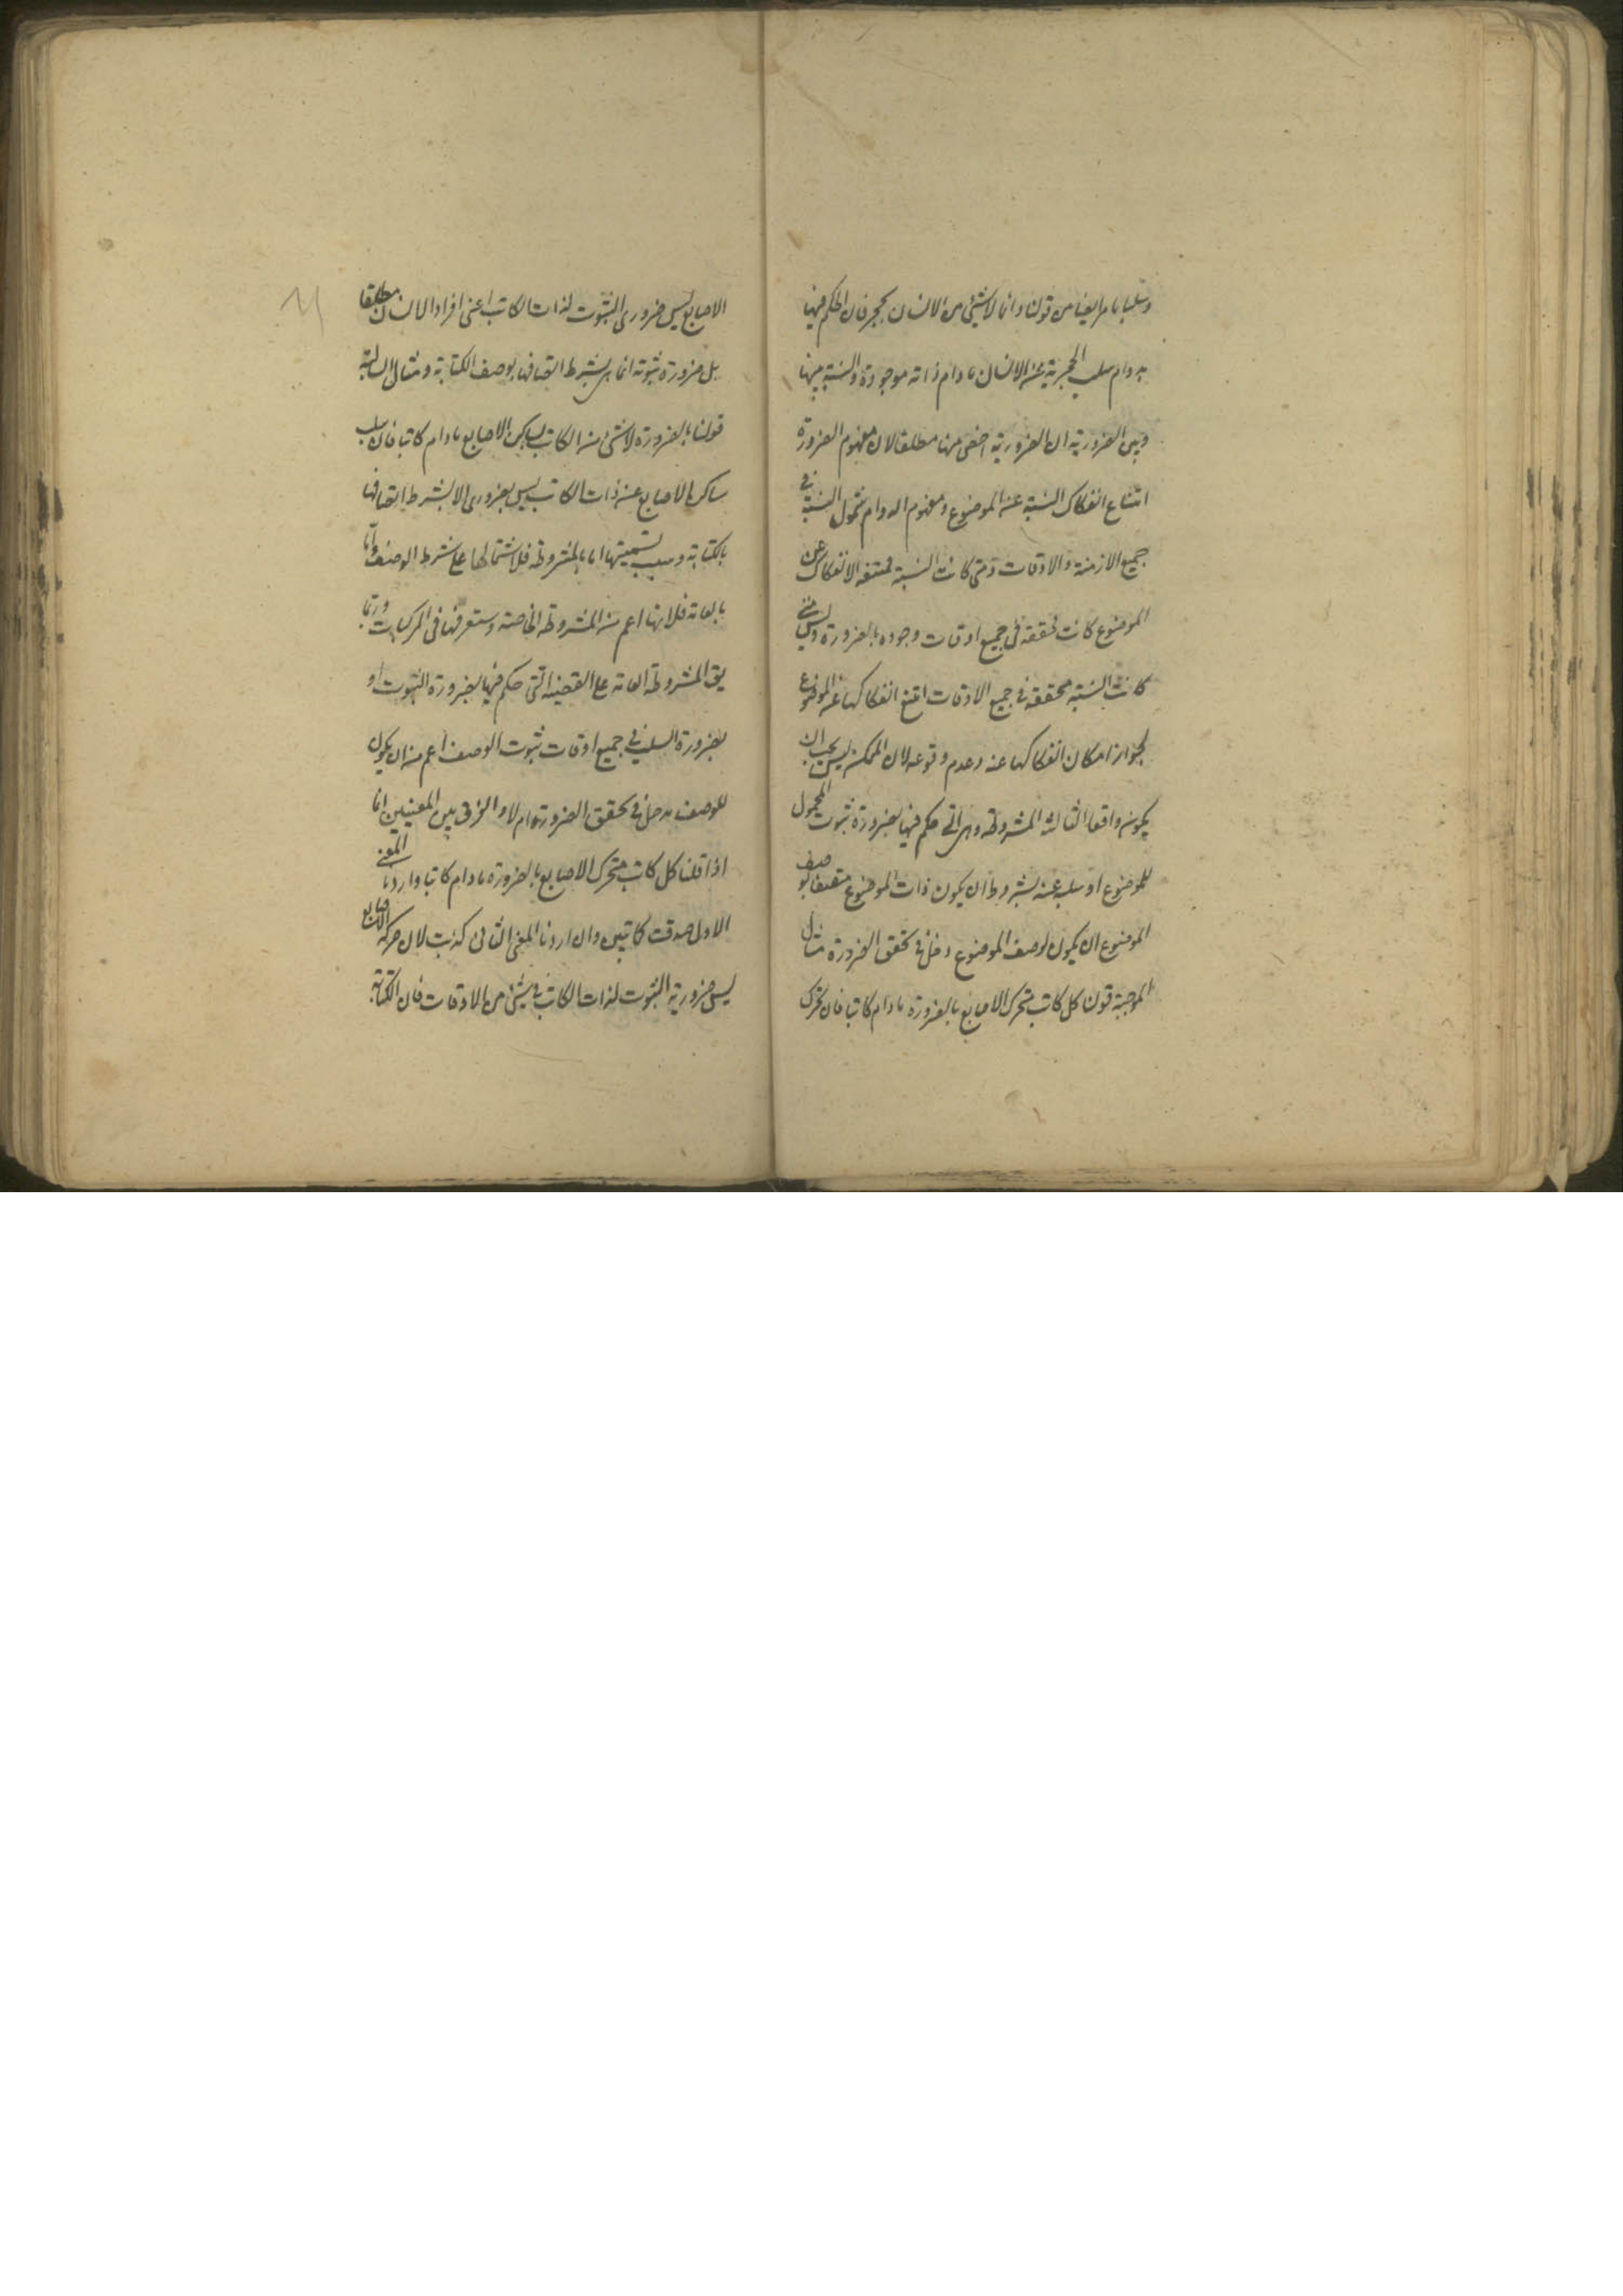 وسلبا ما مر ايضا من قولنا دائما لا شيئ من الانسان بحجر فان الحكم فيها
بدوام سلب الحجرية عن الانسان مادام ذاته موجودة والنسبة بينها
وبين الضرورية ان الضرورية اخص منها مطلقا لان مفهوم الضرورة
امتناع انفكاك النسبة عن الموضوع ومفهوم الدوام شمول النسبة في
جميع الازمنة والاوقات ومتى كانت النسبة ممتنعة الانفكاك عن
الموضوع كانت محققة في جميع اوقات وجوده بالضرورة وليس متى
كانت النسبة محققة في جميع الاوقات امتنع انفكاكها عن الموضوع
لجواز امكان انفكاكها عنه وعدم وقوعه لان الممكن ليس يجب ان
يكون واقعا الثالثة المشروطة وهي التي حكم فيها بضرورة ثبوت المحمول
للموضوع او سلبه عنه بشرط ان يكون ذات الموضوع متصفا بوصف
الموضوع ان يكون لوصف الموضوع دخل في تحقق الضرورة مثال
الموجبة قولنا كل كاتب متحرك الاصابع بالضرورة مادام كاتبا فان تحرك
الاصابع ليس ضروري الثبوت لذات الكاتب اعنى افراد الانسان مطلقا
بل ضرورة ثبوته انما هي بشرط اتصافها بوصف الكتابة ومثال السالبة
قولنا بالضرورة لا شئ من الكاتب بساكن الاصابع مادام كاتبا فان سلب
ساكن الاصابع عن ذات الكاتب ليس بضرورى الا بشرط اتصافها
بالكتابة وسبب تسميتها اما بالمشروطة فلاشتمالها على شرط الوصف واما
بالعامة فلانها اعم من المشروطة الخاصة وستعرفها فى المركبات وربما
يق المشروطة العامة على القضية التى حكم فيها بضرورة الثبوت او
بضرورة السلب في جميع اوقات ثبوت الوصف اعم من ان يكون
للوصف مدخل في تحقق الضرورة ام لا والفرق بين المعنيين انا
اذا قلنا كل كاتب متحرك الاصابع بالضرورة مادام كاتبا واردنا المعنى
الاول صدقت كما تبين وان اردنا المعنى الثانى كذبت لان حركة الاصابع
ليس ضرورية الثبوت لذات الكاتب في شيئ من الاوقات فان الكتابة